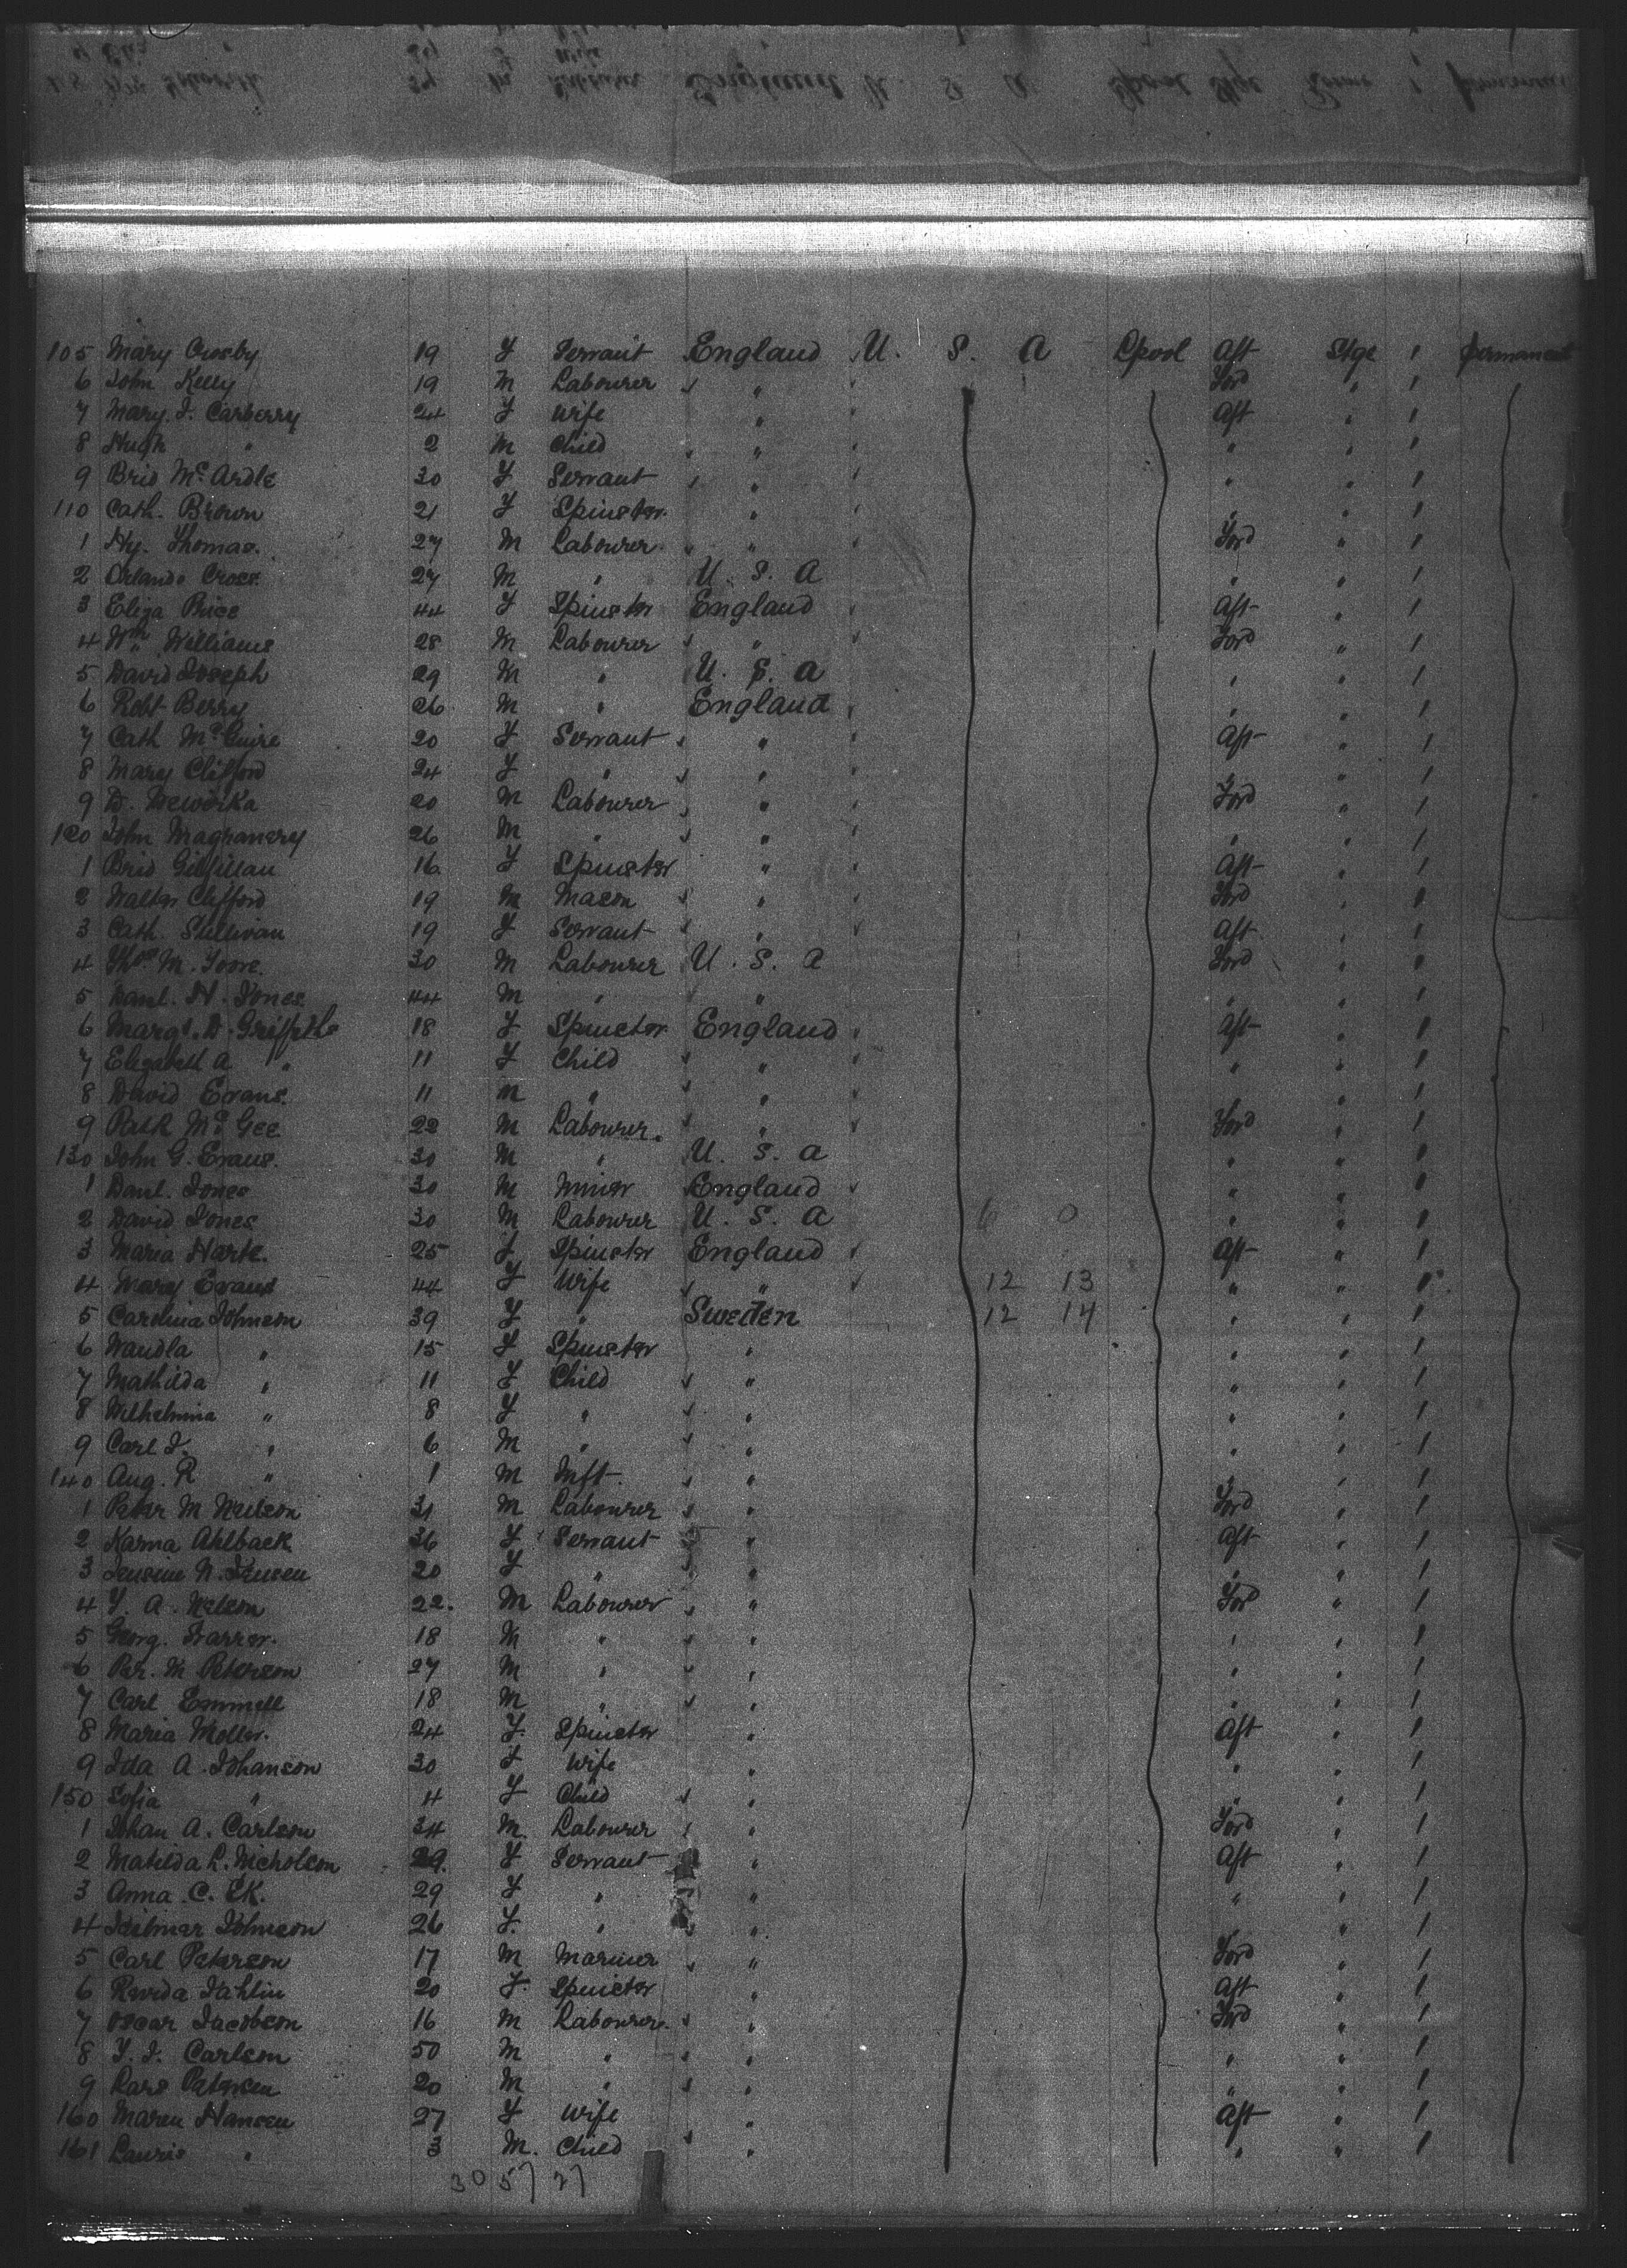 105 Mary Crosby 19 F Servant England U. S. A Lpool Aft Stge 1 permanent
6 John Kelly 19 M Labourer " Ford " 1
7 Mary J. Carberry 24 F Wife " Aft " 1
8 Hugh " 2 M Child " " " 1
9 Brid McArdle 30 F Servant " " " 1
110 Cath. Brown 21 F Spinster " " " 1
1 Hy. Thomas 27 M Labourer " Ford " 1
2 Orlando Cross 27 M " U. S. A " " 1
3 Eliza Price 44 F Spinster England Aft " 1
4 Wm Williams 28 M Labourer " Ford " 1
5 David Joseph 29 M " U. S. A " " 1
6 Robt Berry 26 M " England " " 1
7 Cath McGuire 20 F Servant " Aft " 1
8 Mary Clifford 24 F " " " " 1
9 D. 20 M Labourer " Ford " 1
120 John 26 M " " " " 1
1 Brid Gilfillan 16 F Spinster " Aft " 1
2 Walter Clifford 19 M Mason " Ford " 1
3 Cath. Sullivan 19 F Servant " Aft " 1
4 Thos M. 30 M Labourer U. S. A Ford " 1
5 Danl. H. Jones 44 M " " " " 1
6 Margt. D. Griffiths 18 F Spinster England Aft " 1
7 Elizabeth A " 11 F Child " " " 1
8 David Evans 11 M " " " " 1
9 Patk McGee 22 M Labourer " Ford " 1
130 John G. Evans 30 M " U. S. A " " 1
1 Danl. Jones 30 M Miner England " " 1
2 David Jones 30 M Labourer U. S. A 6 0 " " 1
3 Maria Harte 25 F Spinster England Aft " 1
4 Mary Evans 44 F Wife " 12 13 " " 1
5 Carolina Johnson 39 F " Sweden 12 14 " " 1
6 Wandla " 15 F Spinster " " " 1
7 Mathilda " 11 F Child " " " 1
8 Wilhelmina " 8 F " " " " 1
9 Carl J. " 6 M " " " " 1
140 Aug. R " 1 M Inft " " " 1
1 Peter M Neilson 31 M Labourer " Ford " 1
2 Karna Ahlback 36 F Servant " Aft " 1
3 Jensine N. Jensen 20 F " " " " 1
4 F. A. Nelson 22 M Labourer " Ford " 1
5 Georg. 18 M " " " " 1
6 Per. M Peterson 27 M " " " " 1
7 Carl Emmell 18 M " " " " 1
8 Maria Moller 24 F Spinster " Aft " 1
9 Ida A. Johanson 30 F Wife " " " 1
150 Sofia " 4 F Child " " " 1
1 Johan A. Carlson 34 M Labourer " Ford " 1
2 Matilda L. Nicholson 29 F Servant " Aft " 1
3 Anna C. Ek. 29 F " " " " 1
4 Johnson 26 F " " " 1
5 Carl Peterson 17 M Mariner " Ford " 1
6 20 F Spinster " Aft " 1
7 Oscar Jacobson 16 M Labourer " Ford " 1
8 F. J. Carlson 50 M " " " " 1
9 Lars Petersen 20 M " " " " 1
160 Maren Hansen 27 F Wife " Aft " 1
161 Lauris " 3 M. Child " " " 1
30 57 27